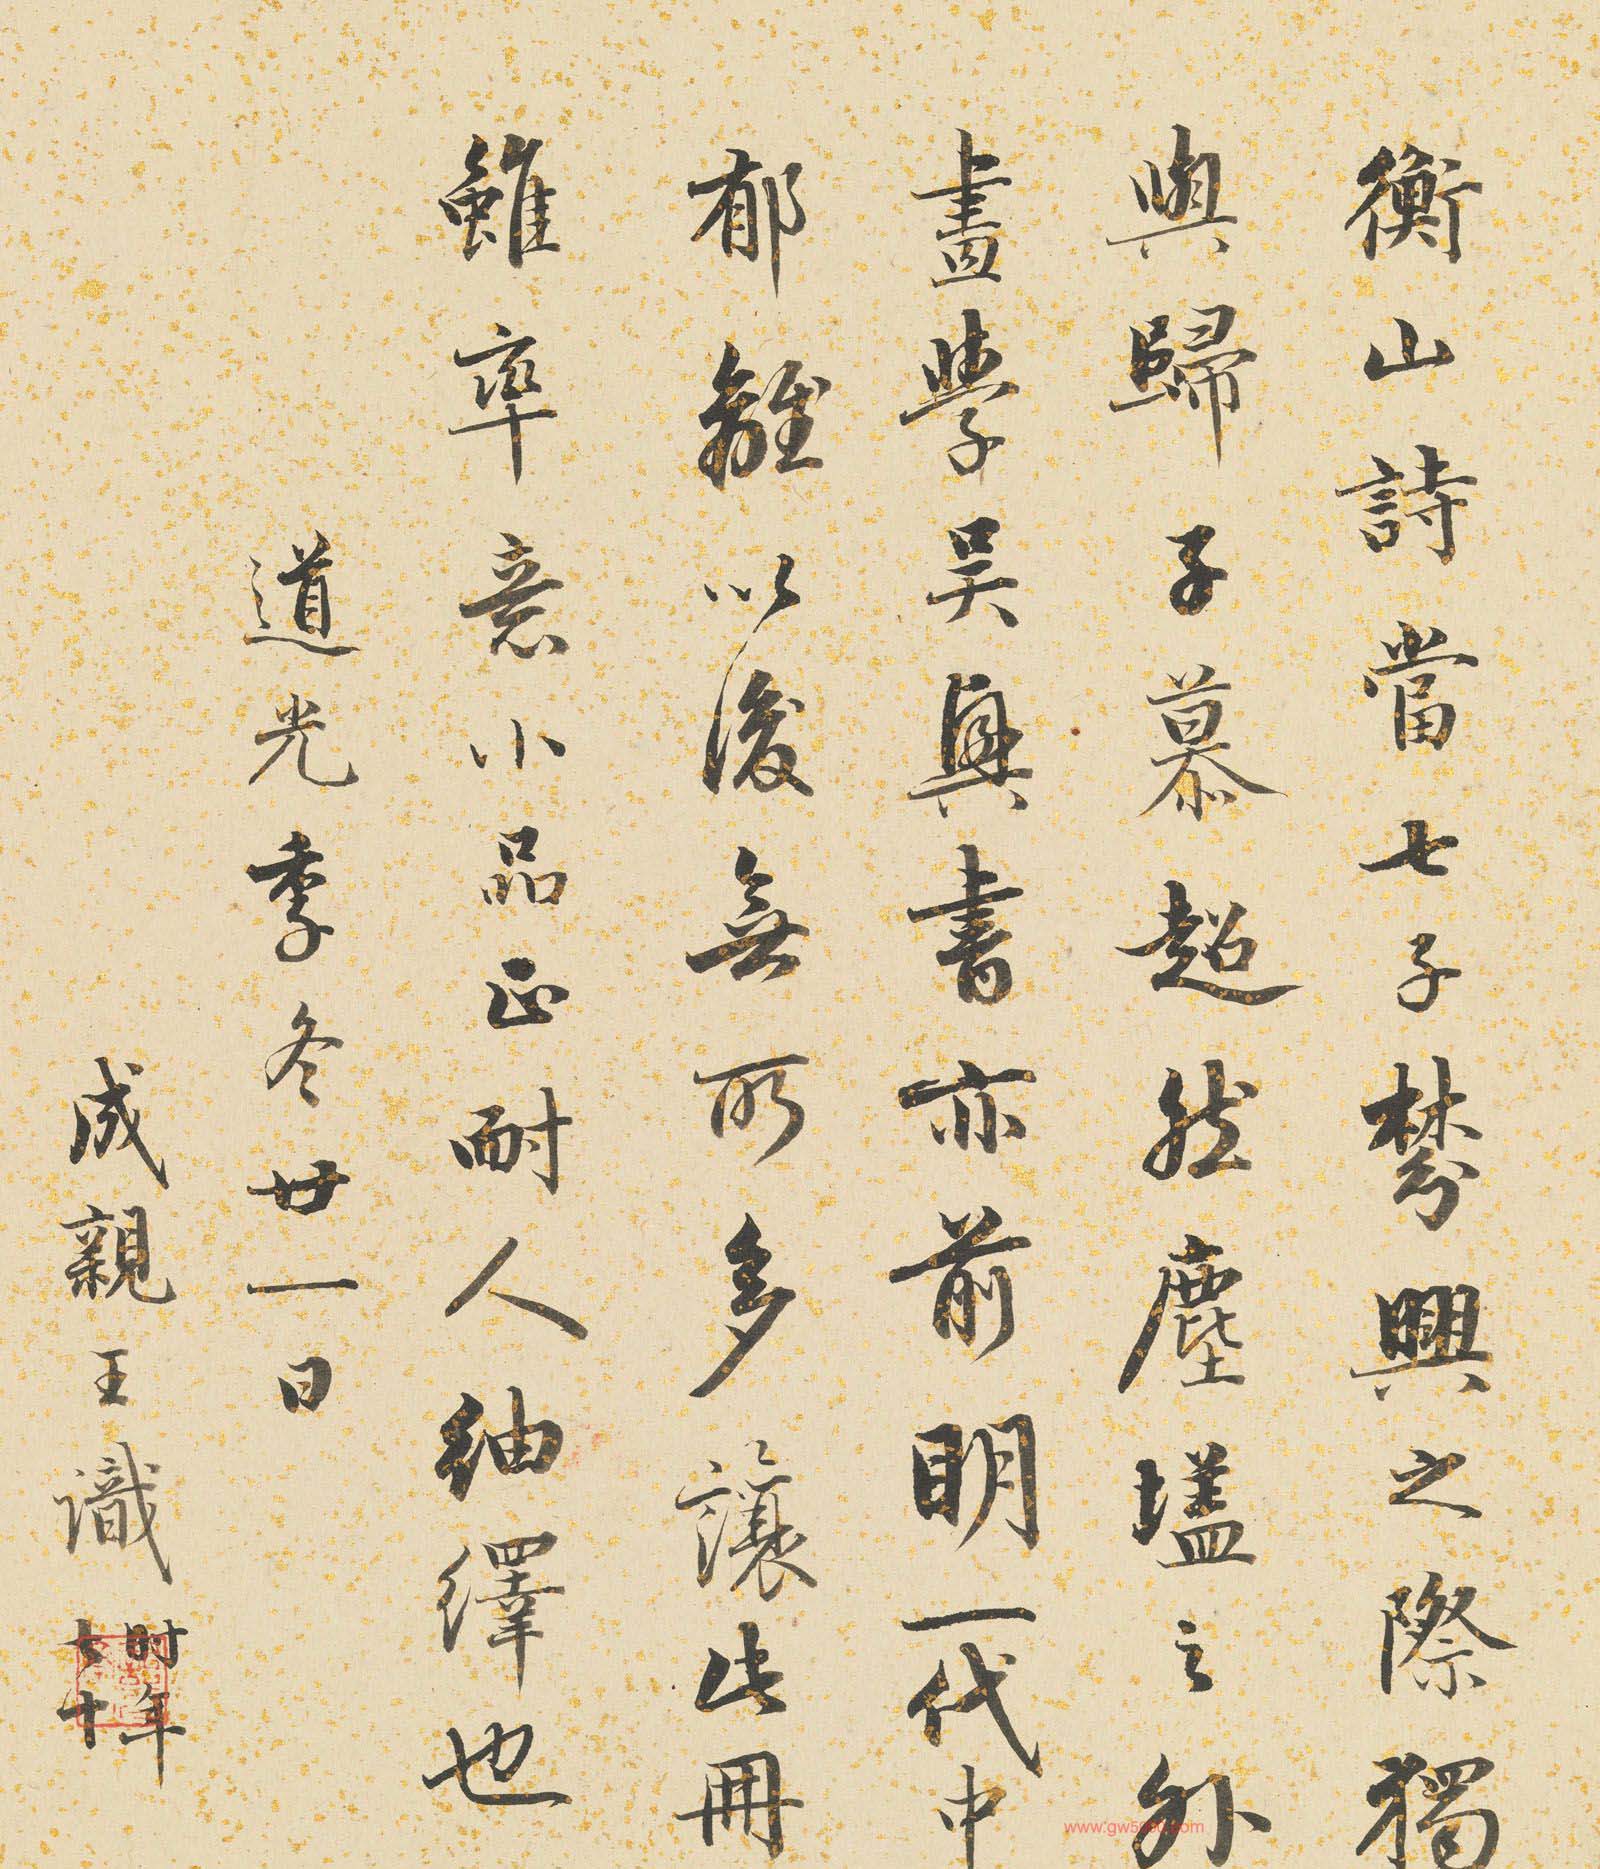 衡山詩當七子棼興之際獨
與歸子慕超然塵壒之外
畫學吳興書亦前明一代中
郁離以後無所多讓此冊
雖率意小品正耐人紬繹也
道光季冬廿一日
成親王識
时年
七十